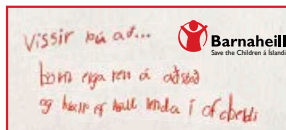 Vissir þú að...
Barnaheill
Save the Children á Íslandi
börn eiga rétt á aðstoð
og
lenda í ofbeldi